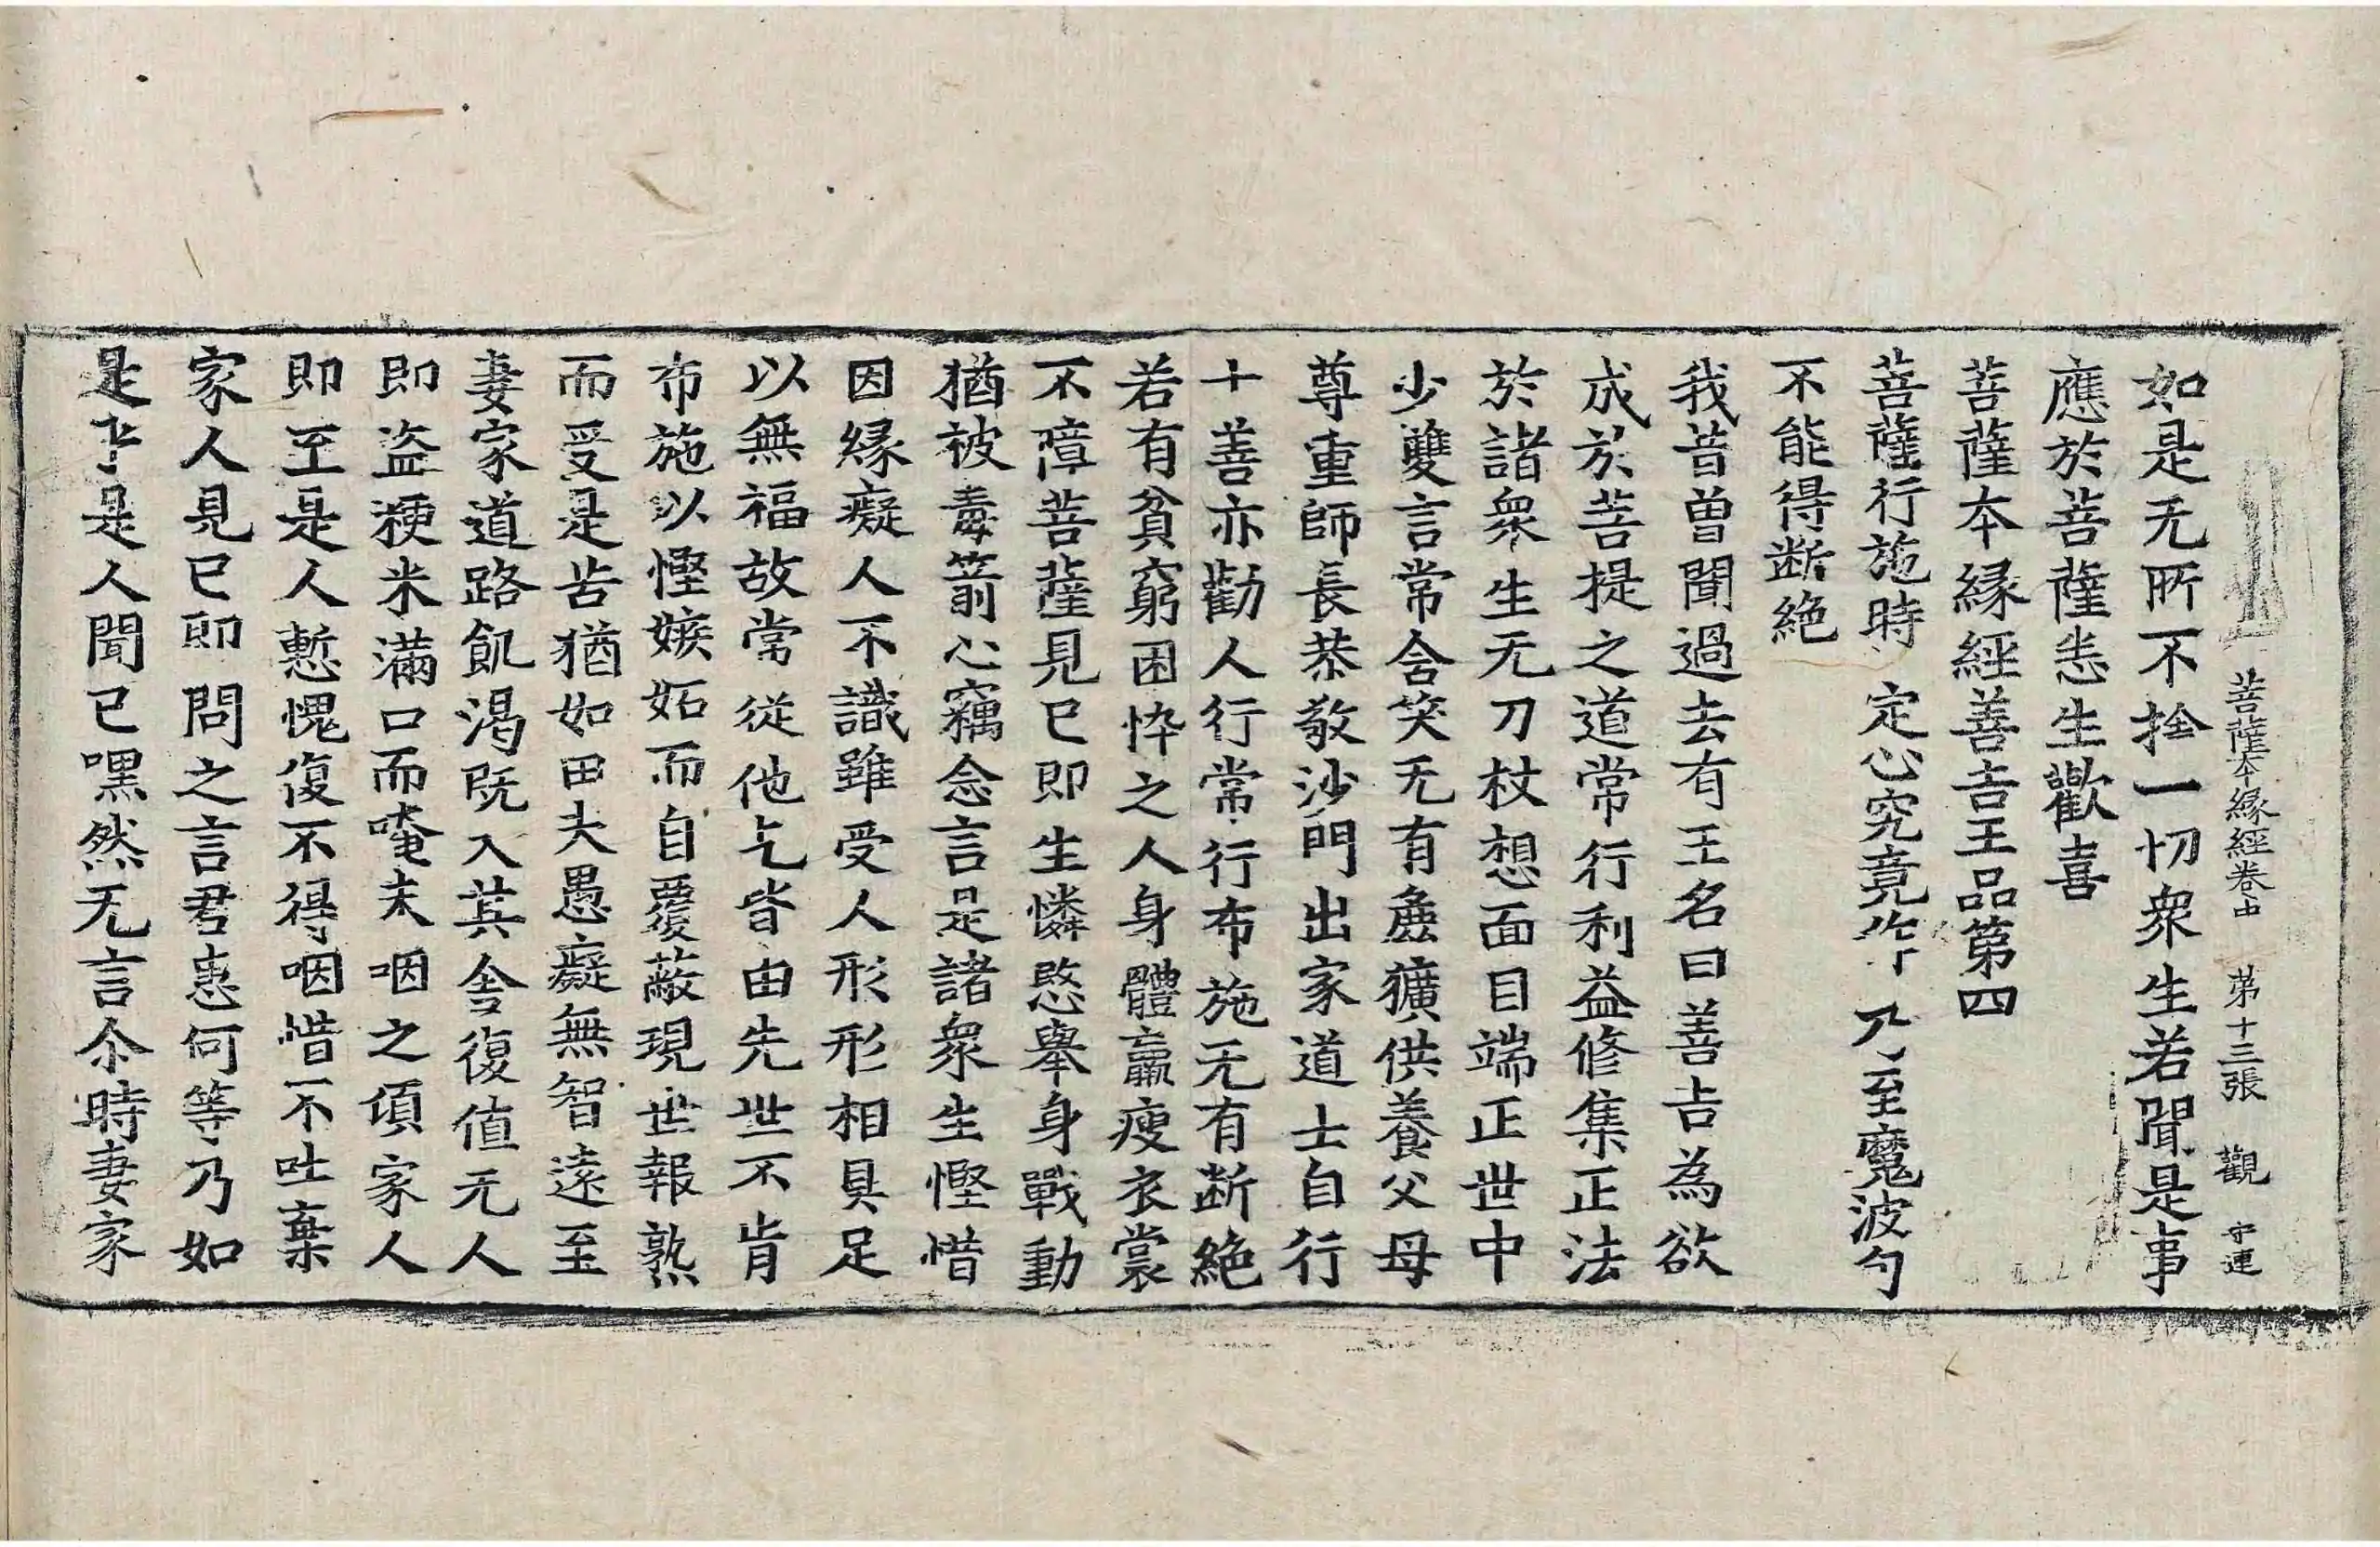 菩薩本緣經卷中 第十三張 觀 守連
如是无所不捨一切衆生若聞是事
應於菩薩恙生歡喜
菩薩本緣經善吉王品第四
菩薩行施時 定心究竟作 乃至魔波旬
不能得断絶
我昔曽聞過去有王名曰善吉為欲
成於菩提之道常行利益修集正法
於諸衆生无刀杖想面目端正世中
少雙言常含笑无有麁獷供養父母
尊重師長恭敬沙門出家道士自行
十善亦勸人行常行布施无有断絶
若有貧窮困忰之人身體羸瘦衣裳
不障菩薩見已即生憐愍舉身戰動
猶被毒箭心竊念言是諸衆生慳惜
因緣癡人不識雖受人形形相具足
以無福故常從他乞皆由先世不肯
布施以慳嫉妬而自覆蔽現世報熟
而受是苦猶如田夫愚癡無智遠至
妻家道路飢渴既入其舍復值无人
即盗粳米滿口而唵未咽之頃家人
即至是人慙愧復不得咽惜不吐棄
家人見已即問之言君患何等乃如
是是人聞已嘿然无言尒時妻家